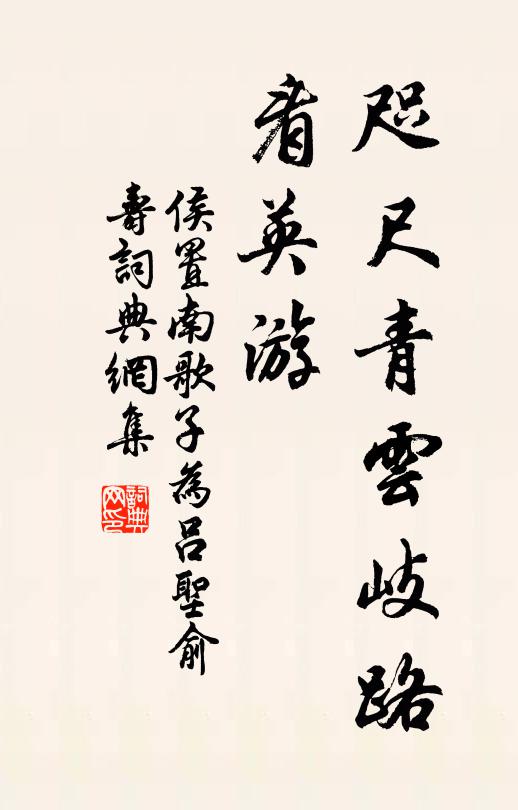 咫尺青雲歧路
看英游
侯置南歌子為呂聖俞
壽詞典網集
詞典
网印